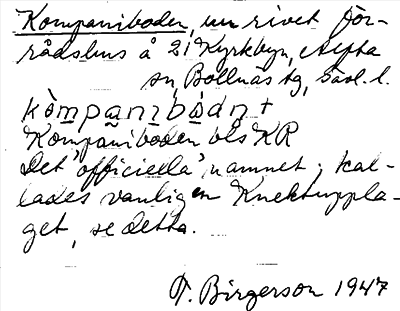 Kompaniboden, nu rivet för-
rådshus å 21 Kyrkbyn, Alfta
sn, Bollnäs tg, Gävl. l.
kòmpanibòdn +
Kompaniboden bls KR
Det "officiella" namnet; kal-
lades vanligen Knektuppla-
get, se detta.
T. Birgerson 1947